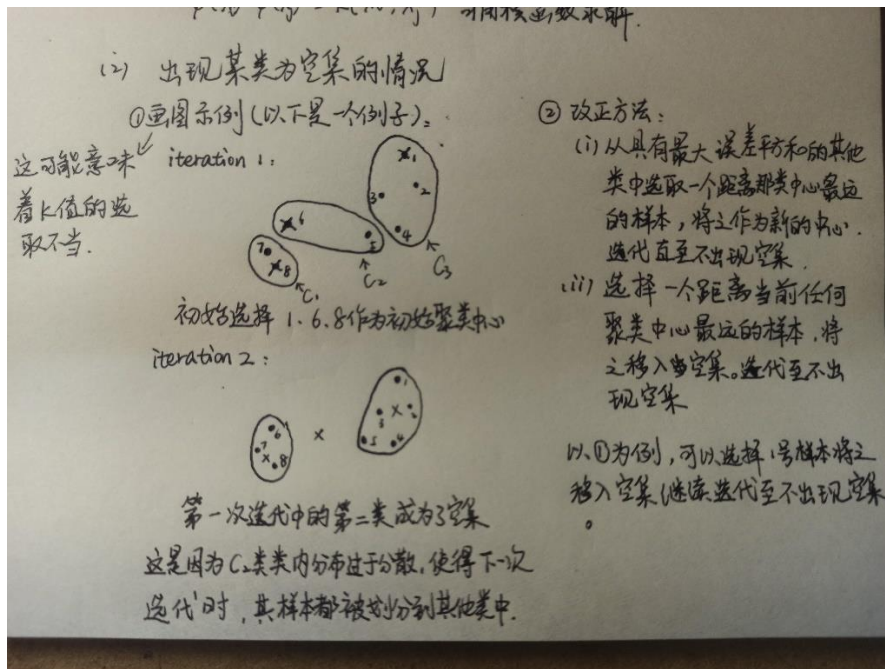 (2) 出现某类为空集的情况
①画图示例(以下是一个例子)。
这可能意味
着k值的选
取不当.
iteration 1:
1
2
3
4
5
6
7
8
C₁
C₂
C₃
初始选择 1.6.8作为初始聚类中心
iteration 2:
1
2
3
4
5
6
7
8
第一次迭代中的第二类成为了空集
这是因为C₂类类内分布过于分散,使得下一次
迭代时,其样本都被划分到其他类中.
② 改正方法:
(i) 从具有最大误差平方和的其他
类中选取一个距离那类中心最远
的样本,将之作为新的中心.
迭代直至不出现空集.
(ii) 选择一个距离当前任何
聚类中心最远的样本,将
之移入当空集。迭代至不出
现空集
以①为例,可以选择1号样本将之
移入空集继续迭代至不出现空集
。